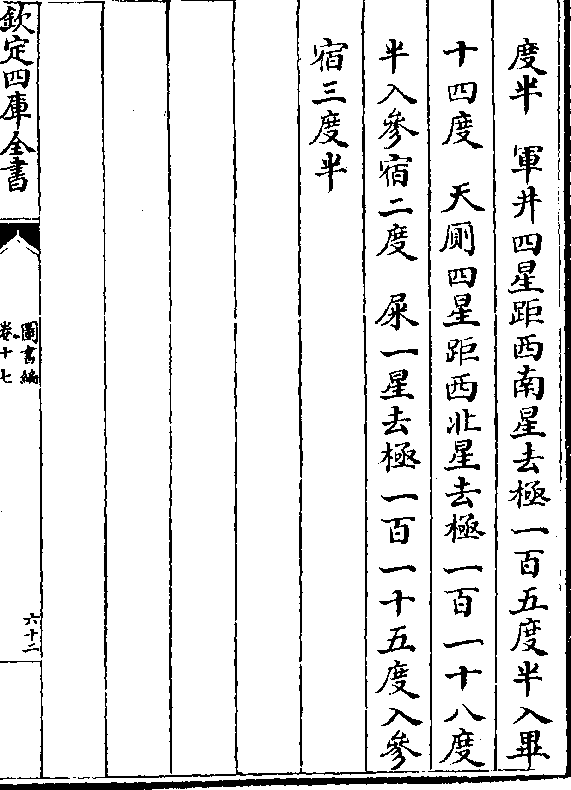 度半　軍井四星距西南星去極一百五度半入畢
十四度　天厠四星距西北星去極一百一十八度
半入參宿二度　屎一星去極一百一十五度入參
宿三度半
欽定四庫全書
圖書編
卷十七
六十二